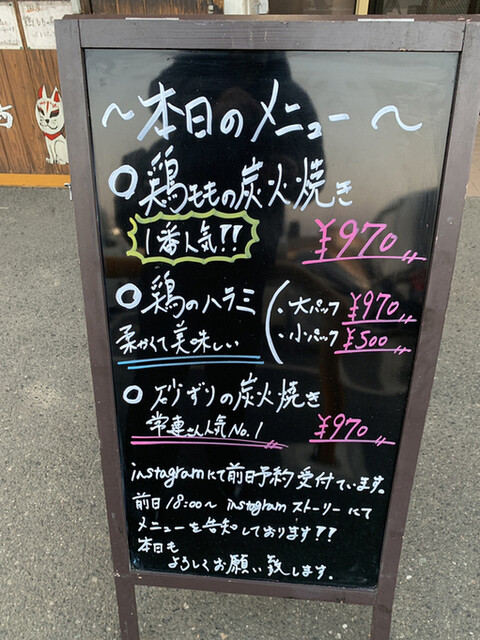 ～本日のメニュー～
○鶏ももの炭火焼き
1番人気!! ¥970
○鶏のハラミ
・大パック ¥970
・小パック ¥500
柔かくて美味しい
○砂ずりの炭火焼き
常連さん人気No.1 ¥970
instagramにて前日予約受付ています。
前日18:00～ instagramストーリーにて
メニューを告知しております!!
本日も
よろしくお願い致します。